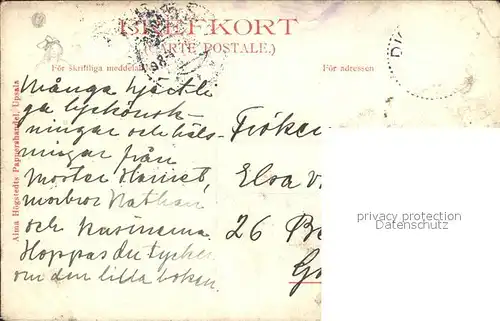 BREFKORT
(CARTE POSTALE.)
För skriftliga meddelan
För adressen
Alma Högstedts Pappershandel, Upsala
Många hjärtli
ga lyckönsk-
ningar och häls-
ningar från
Moster Harriet,
morbror Nathan
och kusinerna
Hoppas du tycker
om den lilla boken.
Fröken
Elsa v.
26
privacy protection
Datenschutz